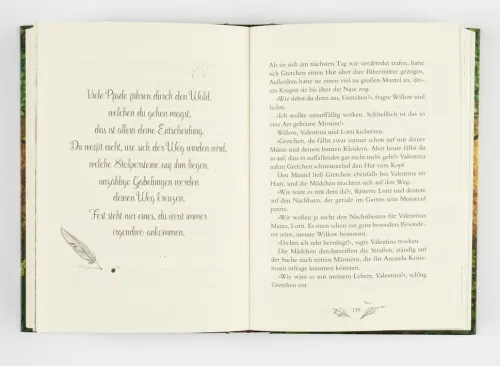 Viele Pfade führen durch den Wald,
welchen du gehen magst,
das ist allein deine Entscheidung.
Du weißt nicht, wie sich der Weg winden wird,
welche Stolpersteine auf ihm liegen,
unzählige Gabelungen werden
deinen Weg kreuzen.
Fest steht nur eines, du wirst immer
irgendwo ankommen.
Als sie sich am nächsten Tag wie verabredet trafen, hatte
sich Gretchen einen Hut über ihre Biberzöpfe gezogen.
Außerdem hatte sie einen viel zu großen Mantel an, des-
sen Kragen sie bis über die Nase zog.
»Wie siehst du denn aus, Gretchen?«, fragte Willow und
lachte.
»Ich wollte unauffällig wirken. Schließlich ist das so
eine Art geheime Mission!«
Willow, Valentina und Lotti kicherten.
»Gretchen, du fällst zwar immer schon auf mit deiner
Mütze und deinen bunten Kleidern. Aber heute fällst du
so auf, dass es auffallender gar nicht mehr geht!« Valentina
nahm Gretchen schmunzelnd den Hut vom Kopf.
Den Mantel ließ Gretchen dann ebenfalls bei Valentina im
Haus, und die Mädchen machten sich auf den Weg.
»Wie wäre es mit dem?«, flüsterte Lotti und deutete
auf den Nachbarn, der gerade im Garten sein Motorrad
putzte.
»Wir wollen ja nicht den Nächstbesten für Valentinas
Mama, Lotti. Es muss schon ein ganz besonders Besonde-
rer sein«, meinte Willow bestimmt.
»Da bin ich sehr beruhigt!«, sagte Valentina trocken.
Die Mädchen durchstreiften die Straßen, ständig auf
der Suche nach netten Männern, die für Amanda
infrage kommen könnten.
»Wie wäre es mit meinem Lehrer, Valentina?«, schlug
Gretchen vor.